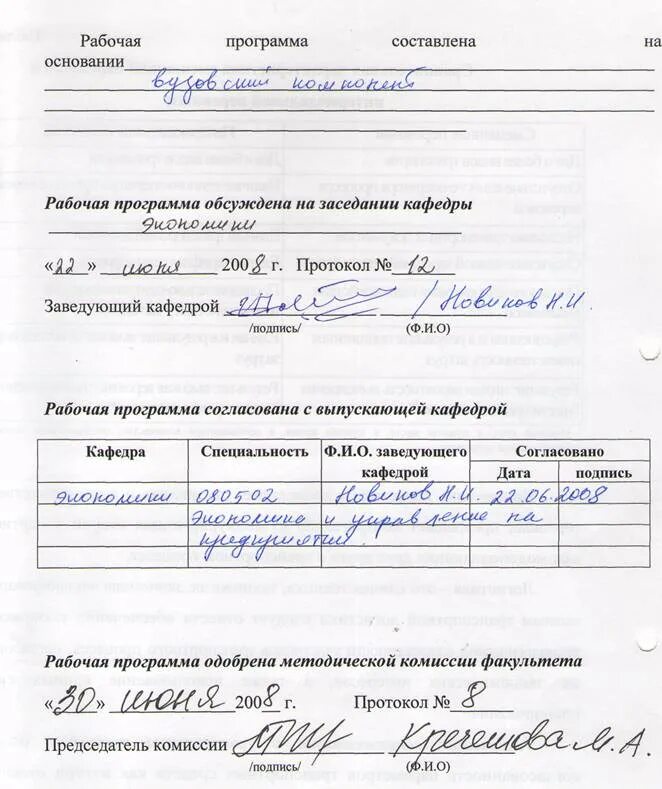 Рабочая программа составлена на
основании
вузовский компонент
Рабочая программа обсуждена на заседании кафедры
экономики
«22» июня 2008 г. Протокол № 12
Заведующий кафедрой / Новиков Н.И.
/подпись/ (Ф.И.О)
Рабочая программа согласована с выпускающей кафедрой
Кафедра Специальность Ф.И.О. заведующего кафедрой Согласовано
Дата подпись
экономики 080502 Новиков Н.И. 22.06.2008
Экономика и управление на
предприятии
Рабочая программа одобрена методической комиссии факультета
«30» июня 2008 г. Протокол № 8
Председатель комиссии М.А.
/подпись/ (Ф.И.О)